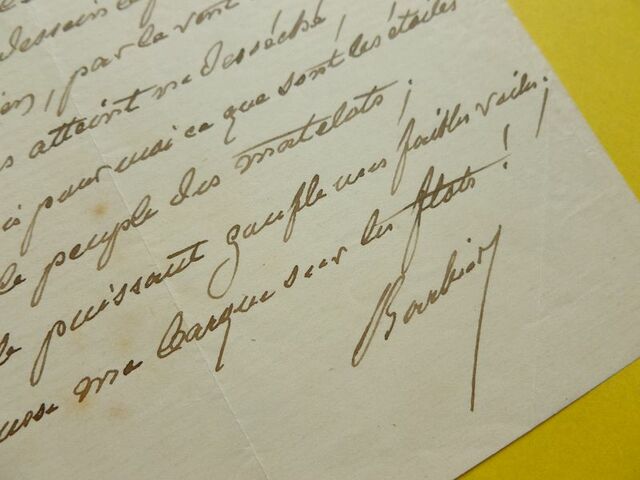 dessein
, par le vent
atteint ni desséché !
pour moi ce que sont les étoiles
le peuple des matelots ;
le puissant gonfle mes faibles voiles,
ma barque sur les flots ! !
Barbier